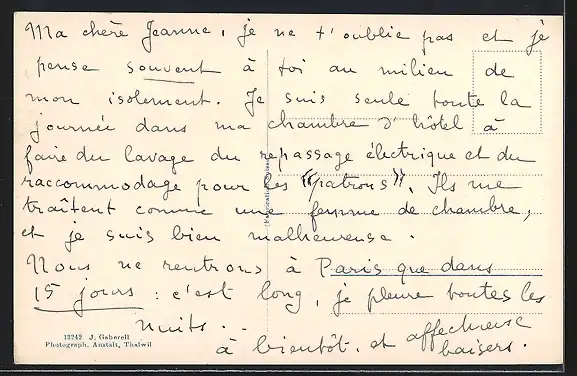 Ma chère Jeanne, je ne t'oublie pas et je
pense souvent à toi au milieu de
mon isolement. Je suis seule toute la
journée dans ma chambre d'hôtel à
faire du lavage du repassage électrique et du
raccommodage pour les "patrons". Ils me
traîtent comme une femme de chambre,
et je suis bien malheureuse.
Nous ne rentrons à Paris que dans
15 jours : c'est long, je pleure toutes les
nuits...
à bientôt. et affectueuse
baisers.
13242 J. Gaberell
Photograph. Anstalt, Thalwil